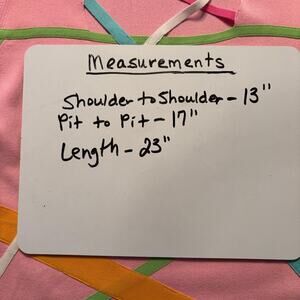 Measurements
Shoulder to Shoulder - 13"
Pit to Pit - 17"
Length - 23"